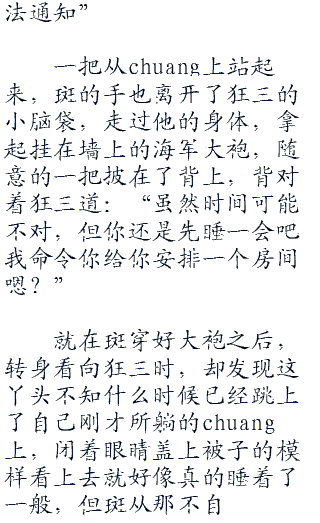 法通知”
一把从chuang上站起
来，斑的手也离开了狂三的
小脑袋，走过他的身体，拿
起挂在墙上的海军大袍，随
意的一把披在了背上，背对
着狂三道：“虽然时间可能
不对，但你还是先睡一会吧
我命令你给你安排一个房间
嗯？”
就在斑穿好大袍之后，
转身看向狂三时，却发现这
丫头不知什么时候已经跳上
了自己刚才所躺的chuang
上，闭着眼睛盖上被子的模
样看上去就好像真的睡着了
一般，但斑从那不自